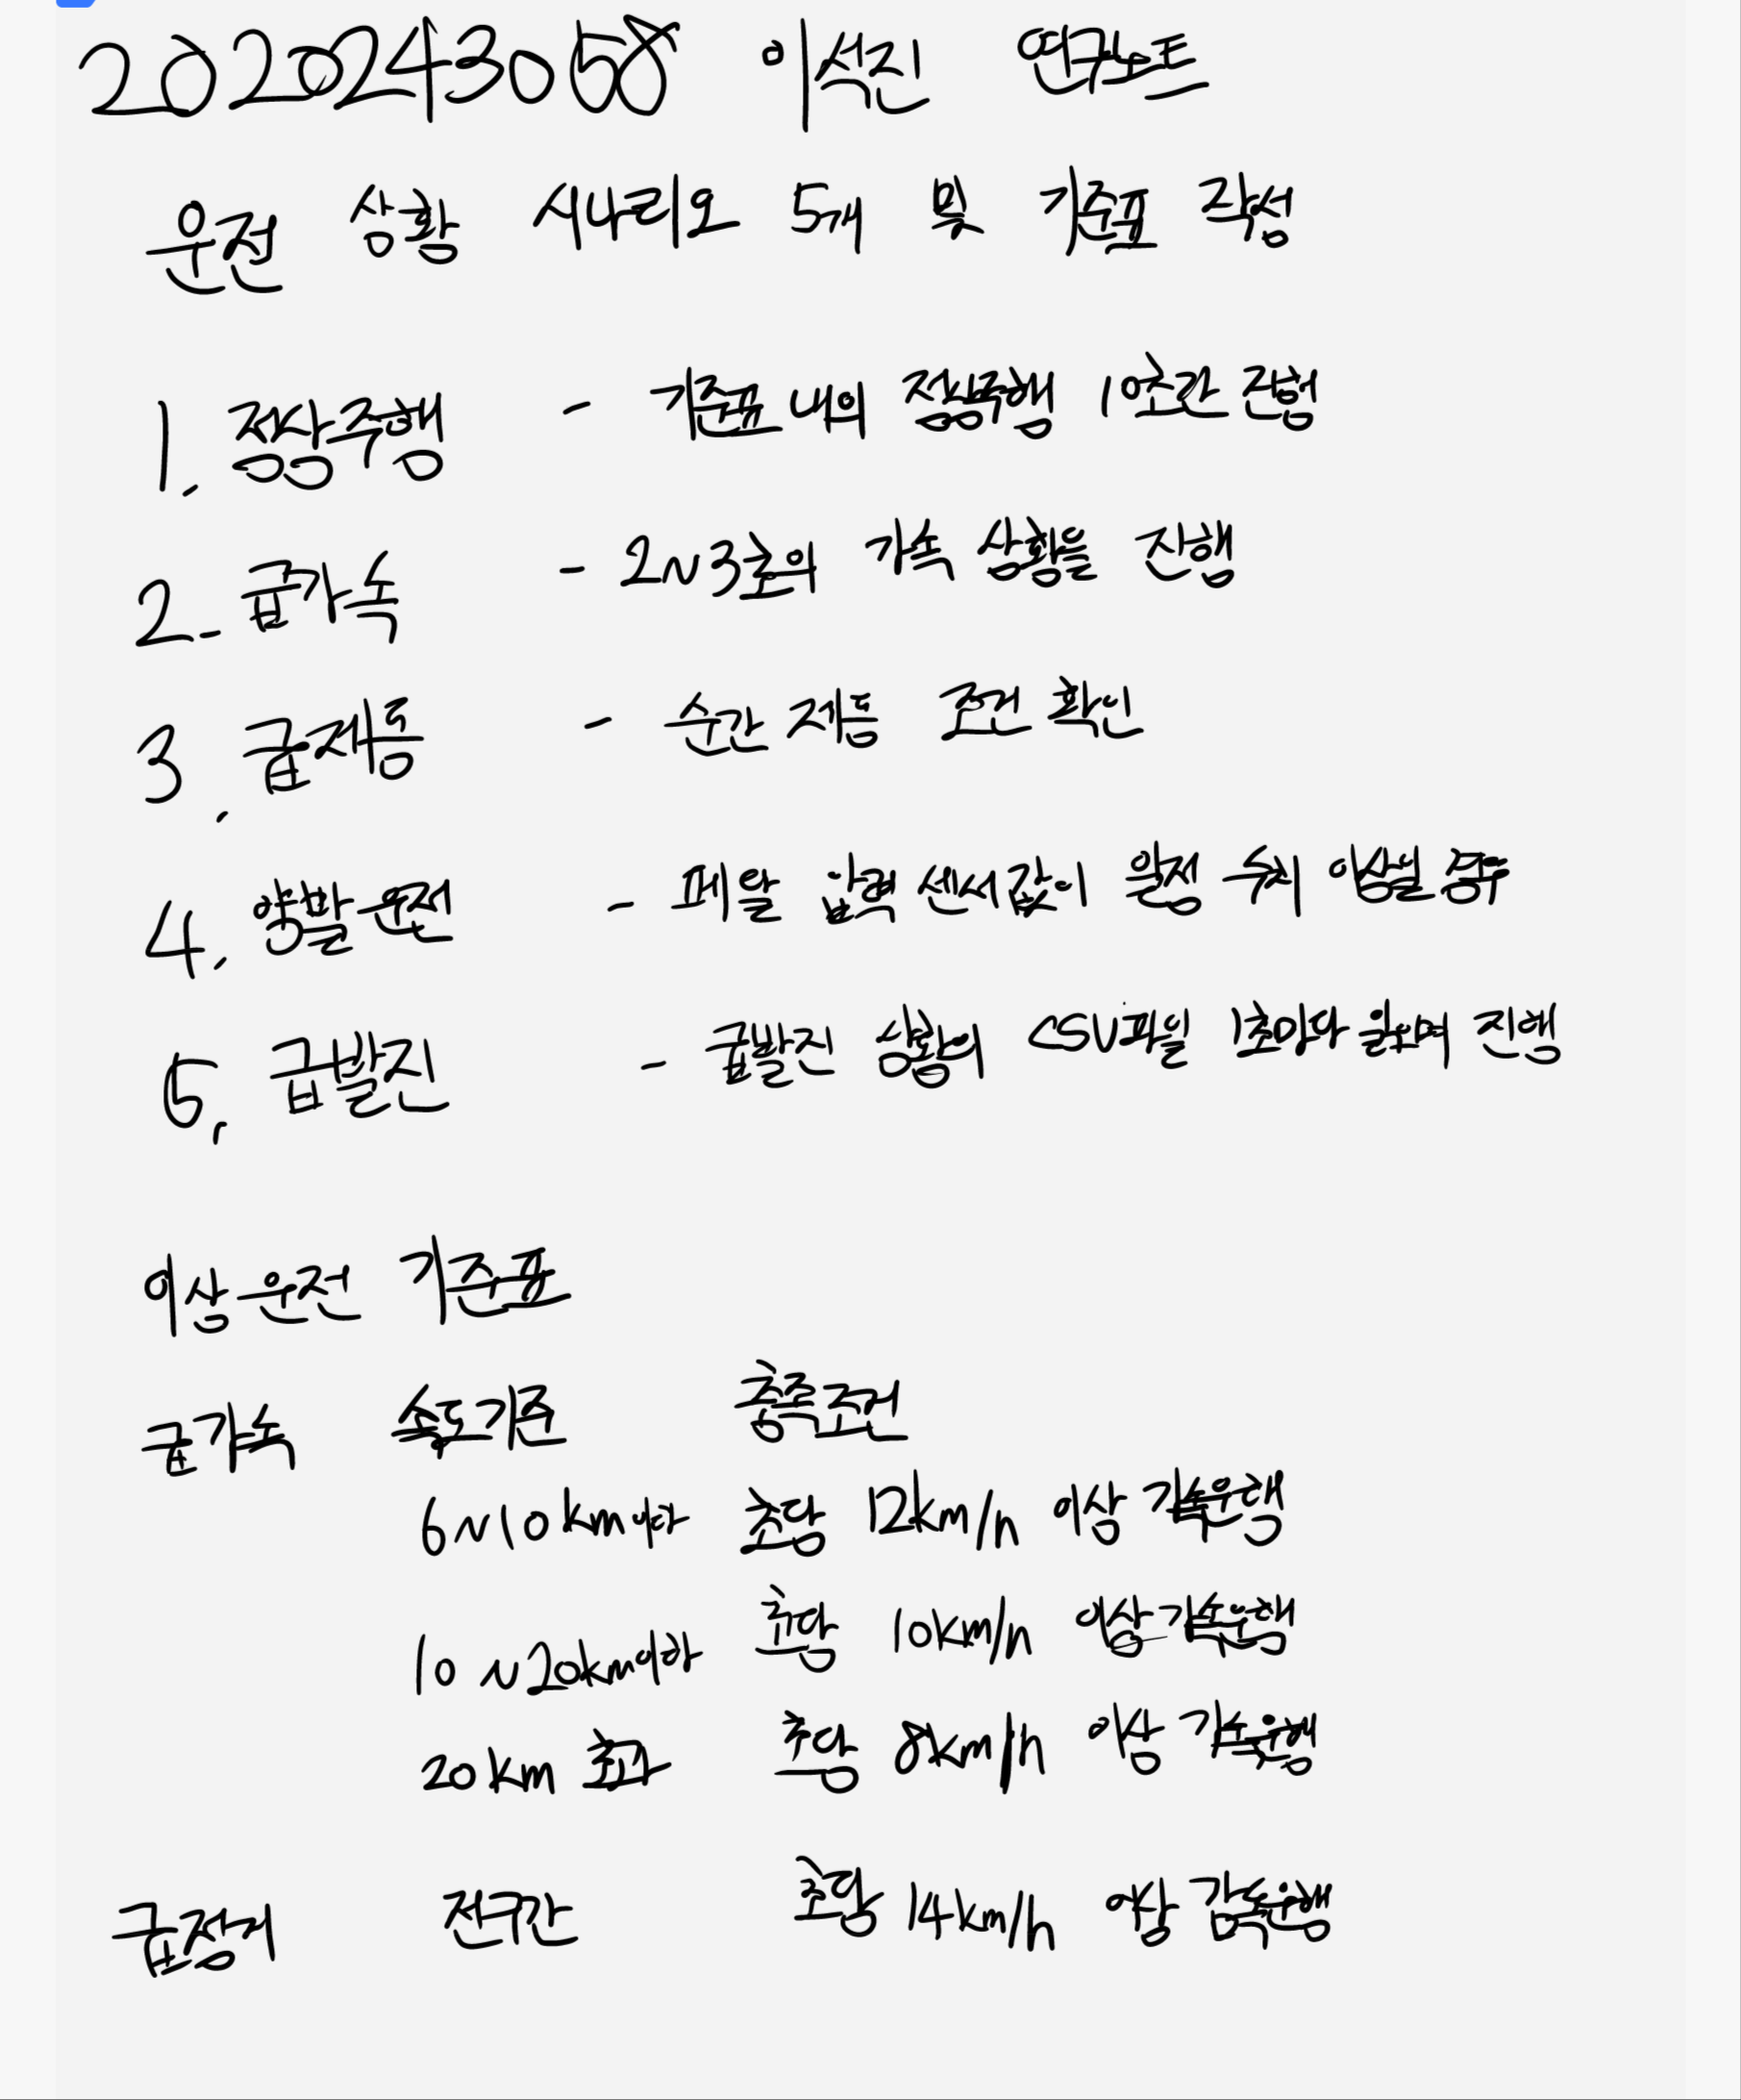 2020243058 이석진 연구노트
운전 상황 시나리오 5개 및 기준표 작성
1. 정상주행 - 기준표 내의 정상주행 10초간 진행
2. 급가속 - 2~3초의 가속 상황을 진행
3. 급제동 - 순간 제동 조건 확인
4. 양발운전 - 페달 압력 센서값이 일정 수치 이상일 경우
5. 급발진 - 급발진 상황의 CSV파일 1초마다 진행
이상운전 기준표
급가속 속도기준 충족조건
6~10km이하 초당 12km/h 이상 가속운행
10~20km이하 초당 10km/h 이상 가속운행
20km 초과 초당 8km/h 이상 가속운행
급정지 전구간 초당 14km/h 이상 감속운행